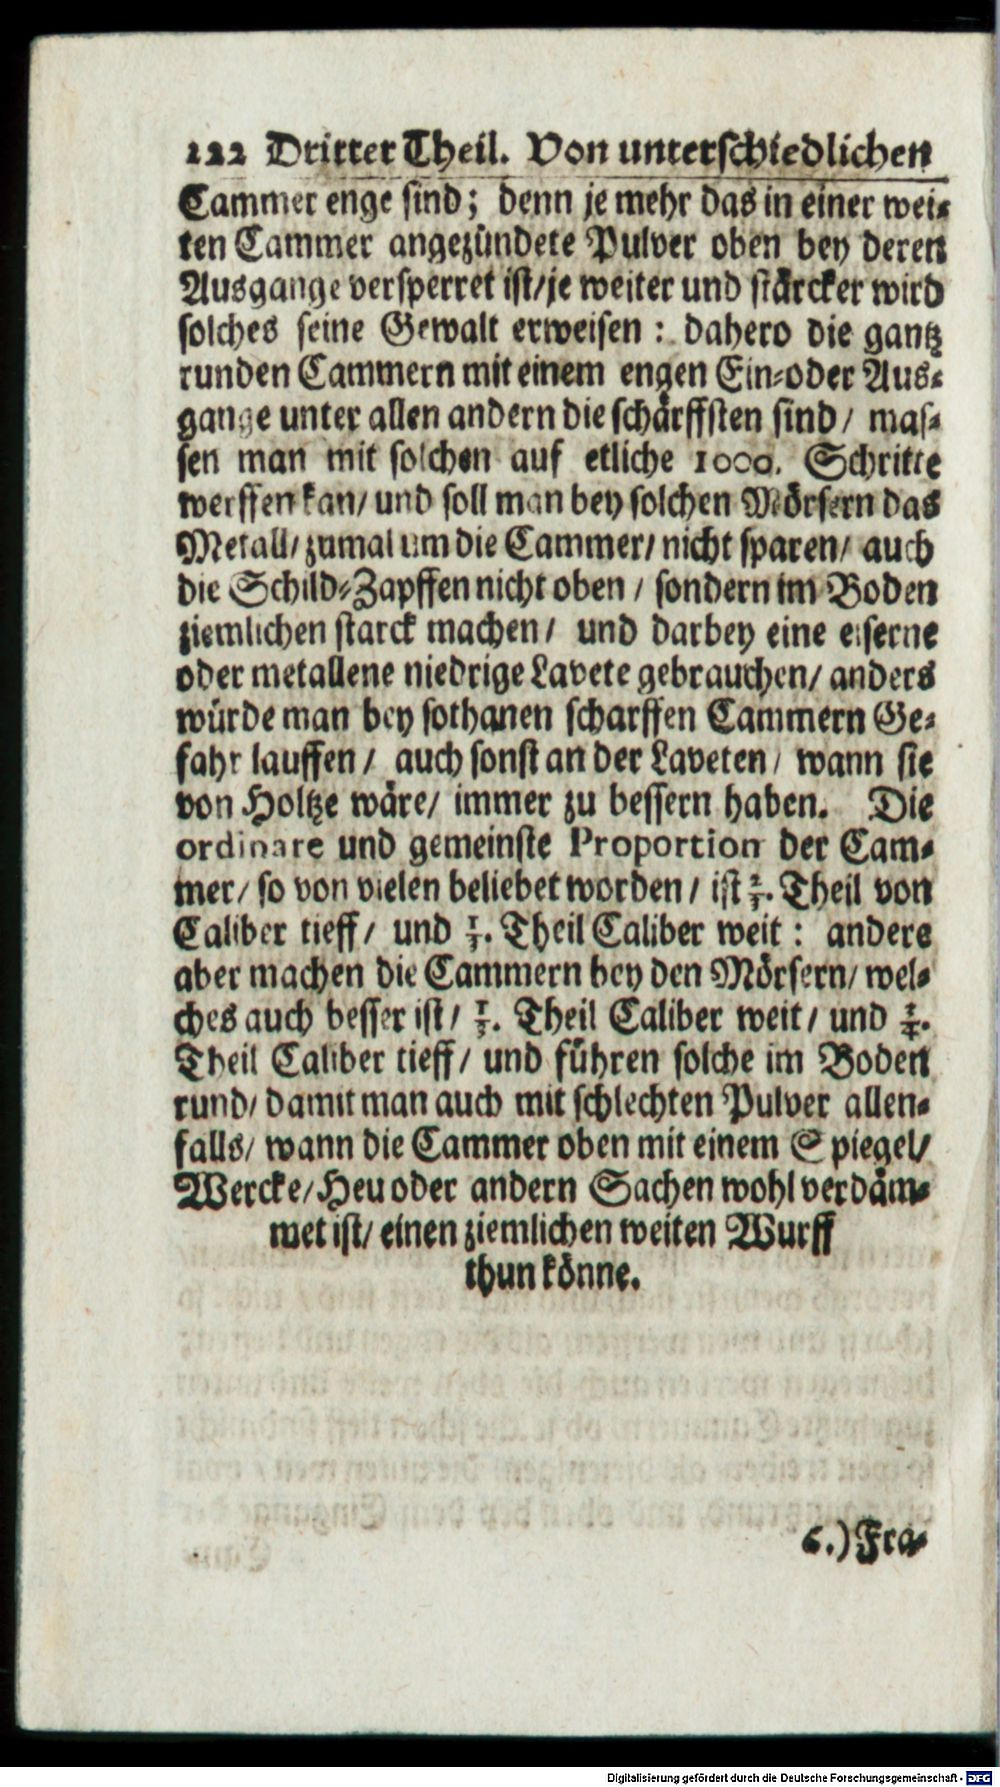 122 Dritter Theil. Von unterschiedlichen
Cammer enge sind; denn je mehr das in einer wei-
ten Cammer angezündete Pulver oben bey deren
Ausgange versperret ist/je weiter und stärcker wird
solches seine Gewalt erweisen: dahero die gantz
runden Cammern mit einem engen Ein-oder Aus-
gange unter allen andern die schärffsten sind/ mas-
sen man mit solchen auf etliche 1000. Schritte
werffen kan/ und soll man bey solchen Mörsern das
Metall/ zumal um die Cammer/ nicht sparen/ auch
die Schild-Zapffen nicht oben/ sondern im Boden
ziemlichen starck machen/ und darbey eine eiserne
oder metallene niedrige Lavete gebrauchen/ anders
würde man bey sothanen scharffen Cammern Ge-
fahr lauffen/ auch sonst an der Laveten/ wann sie
von Holtze wäre/ immer zu bessern haben. Die
ordinare und gemeinste Proportion der Cam-
mer/ so von vielen beliebet worden/ ist 2/3. Theil von
Caliber tieff/ und 1/3. Theil Caliber weit: andere
aber machen die Cammern bey den Mörsern/ wel-
ches auch besser ist/ 1/3. Theil Caliber weit/ und 2/4.
Theil Caliber tieff/ und führen solche im Boden
rund/ damit man auch mit schlechten Pulver allen-
falls/ wann die Cammer oben mit einem Spiegel/
Wercke/ Heu oder andern Sachen wohl verdäm-
met ist/ einen ziemlichen weiten Wurff
thun könne.
6.) Fra-
Digitalisierung gefördert durch die Deutsche Forschungsgemeinschaft - DFG